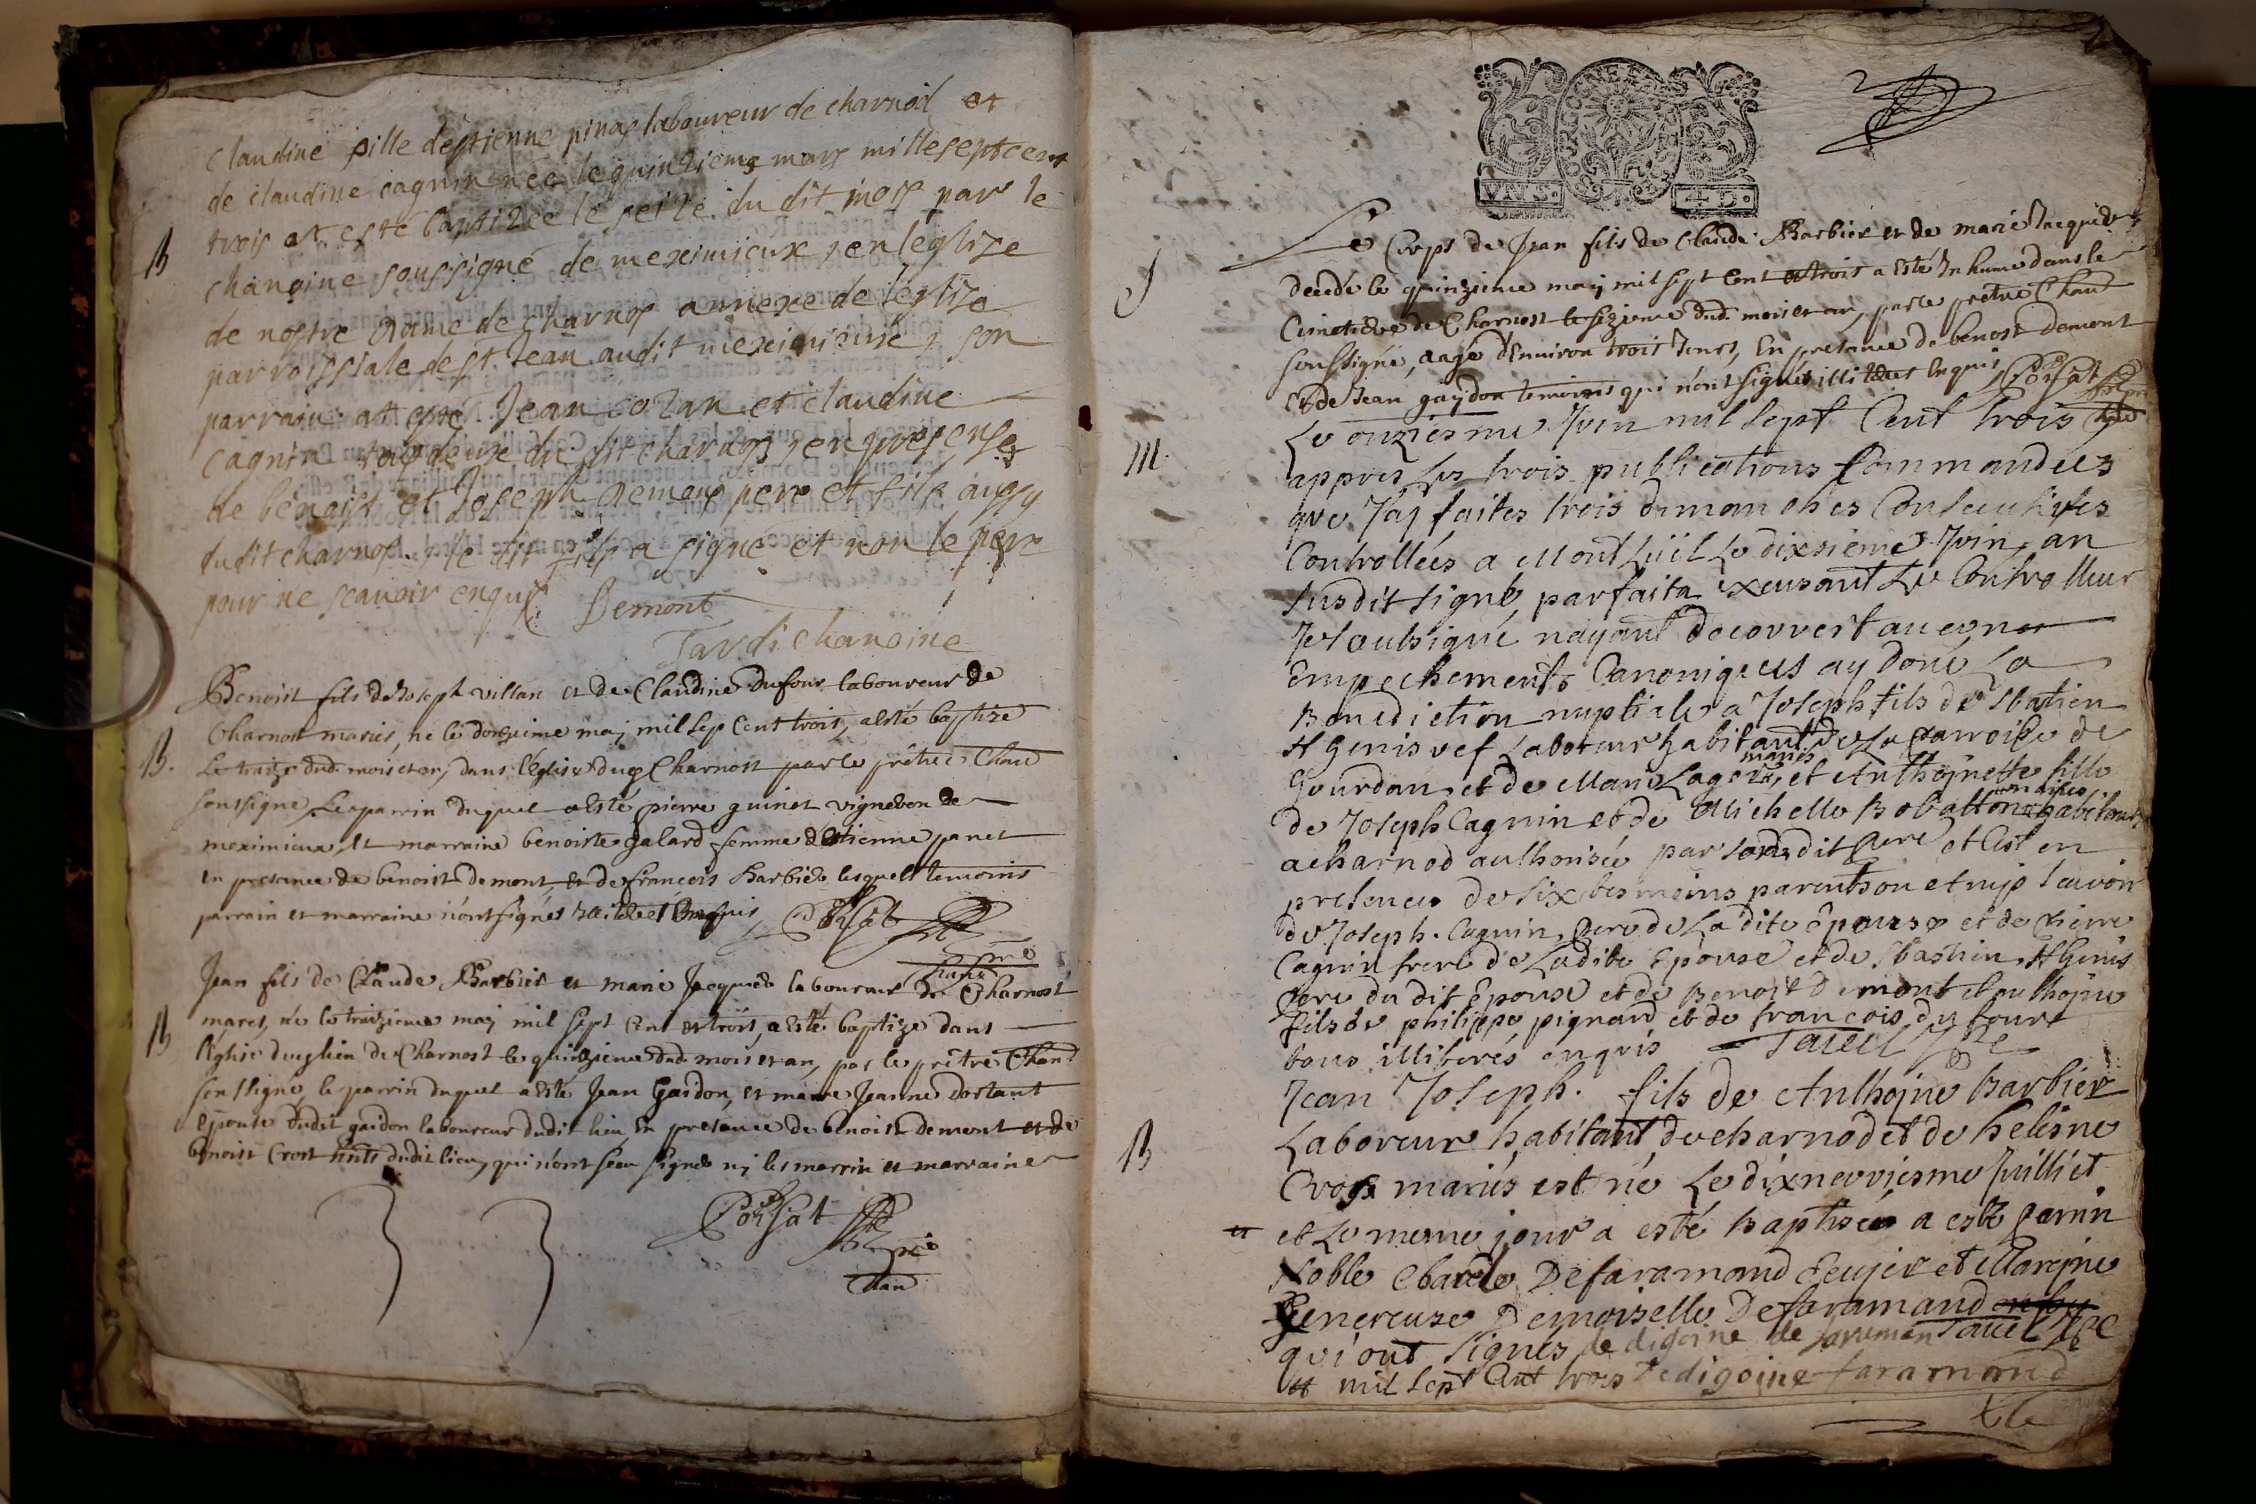 claudine fille destienne pinas laboureur de charnoil et
de claudine cagnin née le quinzieme mars mille septcent
trois at esté baptizée le seize du dit mois par le
B
chanoine soussigné de meximieux en leglize
de nostre dame de charnos annexe de léglize
parroissiale de st. Jean audit meximieux, son
parrain at esté Jean cozan et claudine
cagnin du dit charnos en presense
de benoist et Joseph demons pere et fils aussy
dudit charnos le dit fils a signé et non le pere
pour ne scavoir enquis Demont
Tardi chanoine
Benoist fils de Joseph villan et de Claudine Dufour laboureur de
Charnost mariés, né le douzieme maj mil sep Cent trois, a esté baptize
B.
Le traize dud. mois et an, dans l'église dud Charnost par le prêtre Chan
soussigné Le parrin duquel a esté pierre guinet vigneron de
meximieux, et marraine benoiste galard femme d'Etienne panet
en presence de benoist demont, et de francois Barbier lesquels temoins
parrain et marraine n'ont signés illiteres Enquis, Porsat
pre
Chan
Jean fils de Claude Barbier et marie Jacquier laboureur de Charnost
mariés, né le traizieme maj mil sept Cent et trois, a esté baptize dans
B
l'église dud lieu de Charnost le quinzieme dud. mois et an, par le prêtre Chan
soussigné, le parrin duquel a esté Jean Gaidon, et mâre Jeanne Dortant
épouse dudit gaidon laboureur dudit lieu En presence de benoist demont et de
benoist Crost hnts dudit lieu, qui n'ont sceu signer nj les marrin et marraine
Porsat
pre
Chan
2
Le Corps de Jean fils de Claude Barbier et de marie Jacquier
S
decédé le quinzieme maj mil sept Cent et trois a esté Inhumé dans le
Cimetiere de Charnost le sezieme dud. mois et an, par le prêtre Chan
soussigné, aagé d'Environ trois Jours, En presence de benoist demont
et de Jean gaydon temoins qui n'ont signés illiteres Enquis Porsat
Chan
Le onziesme Juin mil sept Cent trois
M
appres les trois publications Commandées
que J'aj faites trois dimanches Consecutives
Controllées a Montluïl Le dixsieme Juin, an
susdit signé, parfaita Excusant Le Controlleur
Je soubsigné n'ayant decouvert aucuns
Empechements Canoniques ay doné La
Benediction nuptiale a Joseph fils de Sbatien
St Genis vef Laboreur habitant de La parroisse de
mariés
Gourdan et de Marie Lager, et Anthoinette fille
mariés
de Joseph Cagnin et de Michelle Bobatton habitants
a charnod authorisée par son dit pere et C'est en
presence de six tesmoins parents ou amis scavoir
de Joseph Cagnin pere de La dite épouse et de pierre
Cagnin frere de Ladite Epouse et de Sbastien St Genis
pere du dit époux et de Benoit demont et anthoine
fils de philippe pignard et de francois du four
tous illiterés enquis Tavel
Jean Joseph fils de Anthoine Barbier
Laboreur habitant de charnod et de helesne
B
Cros mariés est né Le dixneuviesme Juilliet
et Le meme jour a esté Baptisé a esté parin
Noble Charle De faramond Ecujer et Mareine
Genereuse Demoiselle De faramand
qui ont signés de digoine de faramen Tavel
mil sept Cent trois de digoine faramond